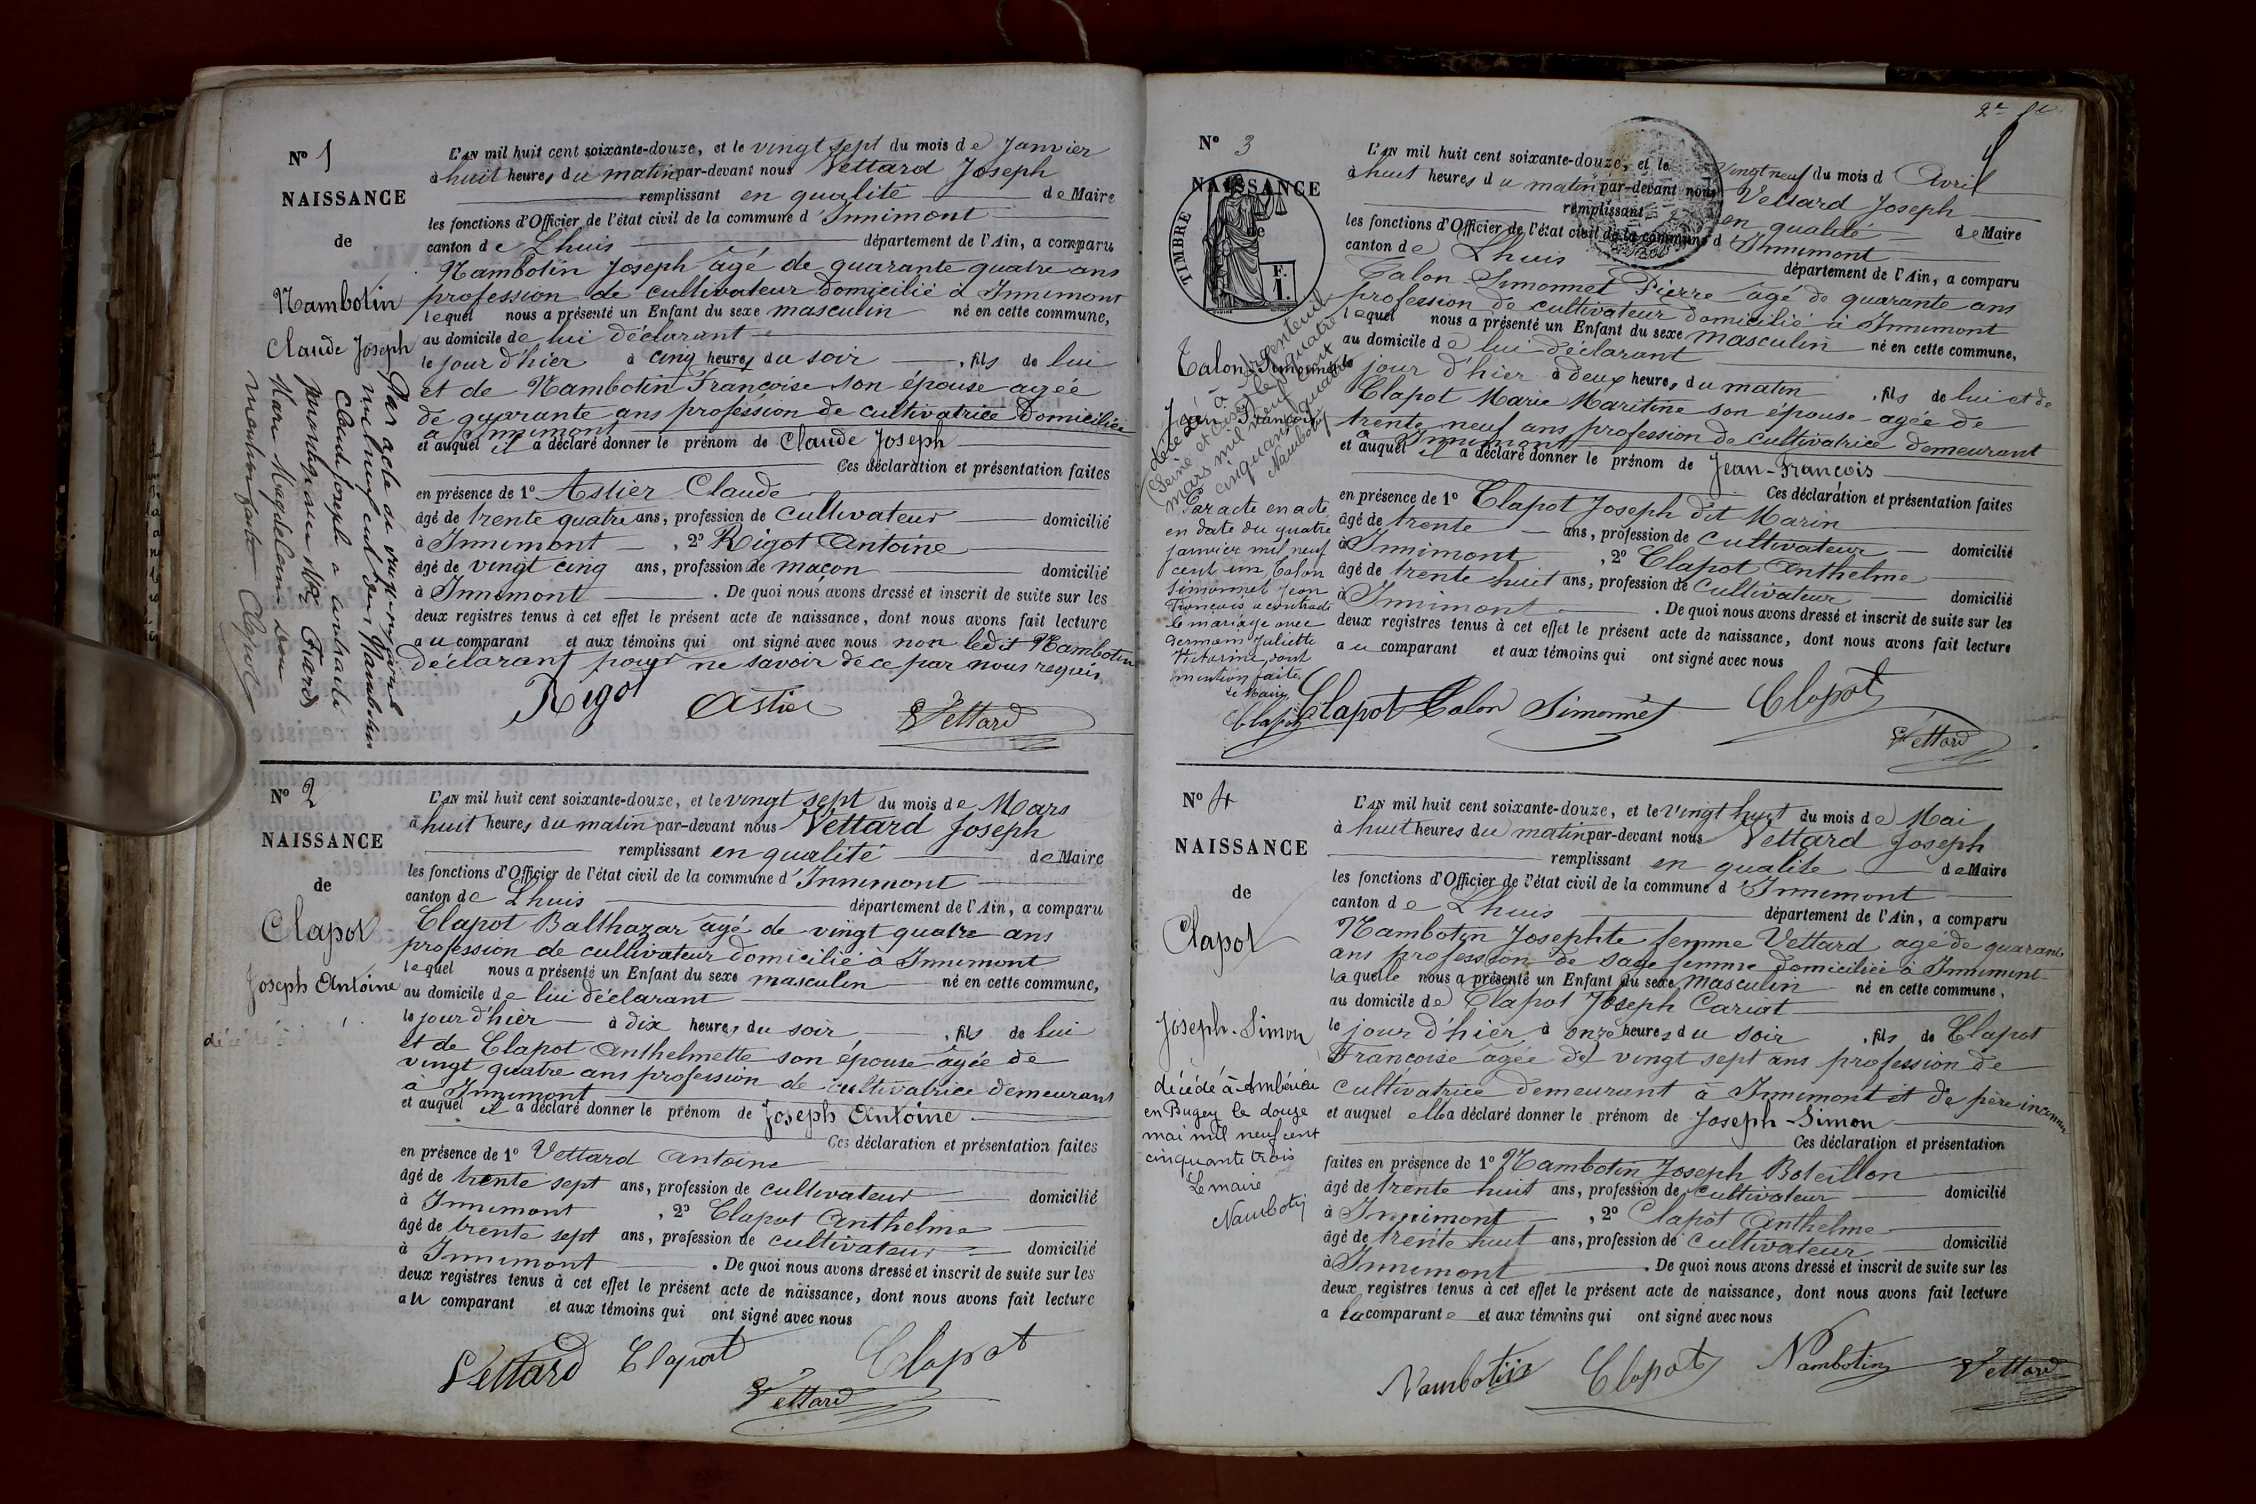 N° 1
NAISSANCE
de
Nambotin
Claude Joseph
Par acte du
mil neuf cent deux Nambotin
Claude Joseph a contracté
mariage avec Mlle
Marie Magdeleine dont
mention faite Clapot
L'AN mil huit cent soixante-douze, et le vingt sept du mois de Janvier
à huit heures du matin par-devant nous Vettard Joseph
remplissant en qualité de Maire
les fonctions d'Officier de l'état civil de la commune d'Innimont
canton de Lhuis département de l'Ain, a comparu
Nambotin Joseph âgé de quarante quatre ans
profession de cultivateur domicilié à Innimont
lequel nous a présenté un Enfant du sexe masculin né en cette commune,
au domicile de lui déclarant
le jour d'hier à cinq heures du soir , fils de lui
et de Nambotin Françoise son épouse agée
de quarante ans profession de cultivatrice domiciliée
à Innimont
et auquel il a déclaré donner le prénom de Claude Joseph
Ces déclaration et présentation faites
en présence de 1° Astier Claude
âgé de trente quatre ans, profession de cultivateur domicilié
à Innimont , 2° Rigot Antoine
âgé de vingt cinq ans, profession de maçon domicilié
à Innimont . De quoi nous avons dressé et inscrit de suite sur les
deux registres tenus à cet effet le présent acte de naissance, dont nous avons fait lecture
au comparant et aux témoins qui ont signé avec nous non ledit Nambotin
déclarant pour ne savoir de ce par nous requis
Rigot Astier Vettard
N° 2
NAISSANCE
de
Clapot
Joseph Antoine
L'AN mil huit cent soixante-douze, et le vingt sept du mois de Mars
à huit heures du matin par-devant nous Vettard Joseph
remplissant en qualité de Maire
les fonctions d'Officier de l'état civil de la commune d'Innimont
canton de Lhuis département de l'Ain, a comparu
Clapot Balthazar âgé de vingt quatre ans
profession de cultivateur domicilié à Innimont
lequel nous a présenté un Enfant du sexe masculin né en cette commune,
au domicile de lui déclarant
le jour d'hier à dix heures du soir , fils de lui
et de Clapot Anthelmette son épouse âgée de
vingt quatre ans profession de cultivatrice demeurant
à Innimont
et auquel il a déclaré donner le prénom de Joseph Antoine
Ces déclaration et présentation faites
en présence de 1° Vettard Antoine
âgé de trente sept ans, profession de cultivateur domicilié
à Innimont , 2° Clapot Anthelme
âgé de trente sept ans, profession de cultivateur domicilié
à Innimont . De quoi nous avons dressé et inscrit de suite sur les
deux registres tenus à cet effet le présent acte de naissance, dont nous avons fait lecture
au comparant et aux témoins qui ont signé avec nous
Vettard Clapot Clapot
Vettard
N° 3
NAISSANCE
de
TIMBRE
F. I.
Talon-Simonnet
Jean François
décédé à Argenteuil
Seine et Oise le quatre
mars mil neuf cent
cinquante quatre
Nambotin
Par acte en acte
en date du quatre
janvier mil neuf
cent un, Talon
Simonnet Jean
François a contracté
le mariage avec
Germain Juliette
Victorine, dont
mention faite.
Le Maire
Clapot
L'AN mil huit cent soixante-douze, et le vingt neuf du mois d Avril
à huit heures du matin par-devant nous Vettard Joseph
remplissant en qualité de Maire
les fonctions d'Officier de l'état civil de la commune d'Innimont
canton de Lhuis département de l'Ain, a comparu
Talon Simonnet Pierre âgé de quarante ans
profession de cultivateur domicilié à Innimont
lequel nous a présenté un Enfant du sexe masculin né en cette commune,
au domicile de lui déclarant
le jour d'hier à deux heures du matin , fils de lui et de
Clapot Marie Maritine son épouse agée de
trente neuf ans profession de cultivatrice demeurant
à Innimont
et auquel il a déclaré donner le prénom de Jean-François
Ces déclaration et présentation faites
en présence de 1° Clapot Joseph dit Marin
âgé de trente ans, profession de cultivateur domicilié
à Innimont , 2° Clapot Anthelme
âgé de trente huit ans, profession de cultivateur domicilié
à Innimont . De quoi nous avons dressé et inscrit de suite sur les
deux registres tenus à cet effet le présent acte de naissance, dont nous avons fait lecture
au comparant et aux témoins qui ont signé avec nous
Clapot Talon Simonnet Clapot
Vettard
N° 4
NAISSANCE
de
Clapot
Joseph-Simon
décédé à Ambérieu
en Bugey le douze
mai mil neuf cent
cinquante trois
Le maire
Nambotin
L'AN mil huit cent soixante-douze, et le vingt huit du mois de Mai
à huit heures du matin par-devant nous Vettard Joseph
remplissant en qualité de Maire
les fonctions d'Officier de l'état civil de la commune d'Innimont
canton de Lhuis département de l'Ain, a comparu
Nambotin Josephte femme Vettard agé de quarante
ans profession de sage femme domiciliée à Innimont
laquelle nous a présenté un Enfant du sexe masculin né en cette commune,
au domicile de Clapot Joseph Cariat
le jour d'hier à onze heures du soir , fils de Clapot
Françoise âgée de vingt sept ans profession de
cultivatrice demeurant à Innimont et de père inconnu
et auquel elle a déclaré donner le prénom de Joseph-Simon
Ces déclaration et présentation
faites en présence de 1° Nambotin Joseph Boteillon
âgé de trente huit ans, profession de cultivateur domicilié
à Innimont , 2° Clapot Anthelme
âgé de trente huit ans, profession de cultivateur domicilié
à Innimont . De quoi nous avons dressé et inscrit de suite sur les
deux registres tenus à cet effet le présent acte de naissance, dont nous avons fait lecture
a la comparante et aux témoins qui ont signé avec nous
Nambotin Clapot Nambotin Vettard